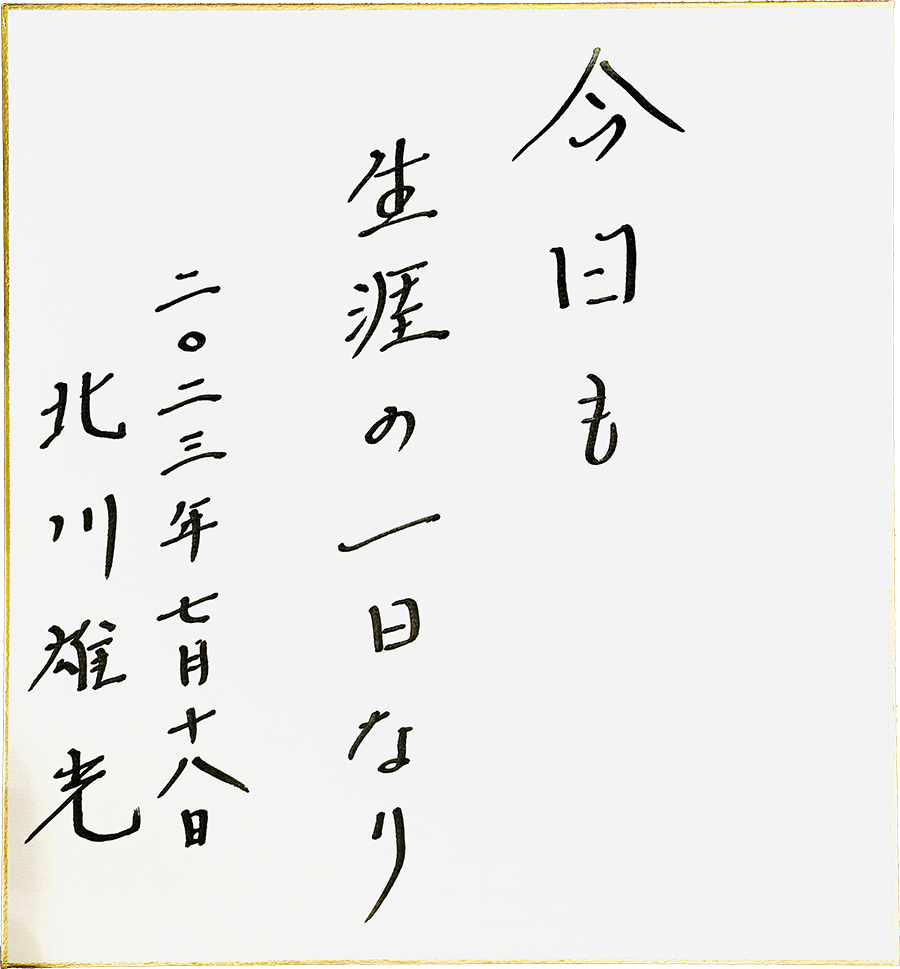 今日も
生涯の一日なり
二〇二三年七月十八日
北川雄光